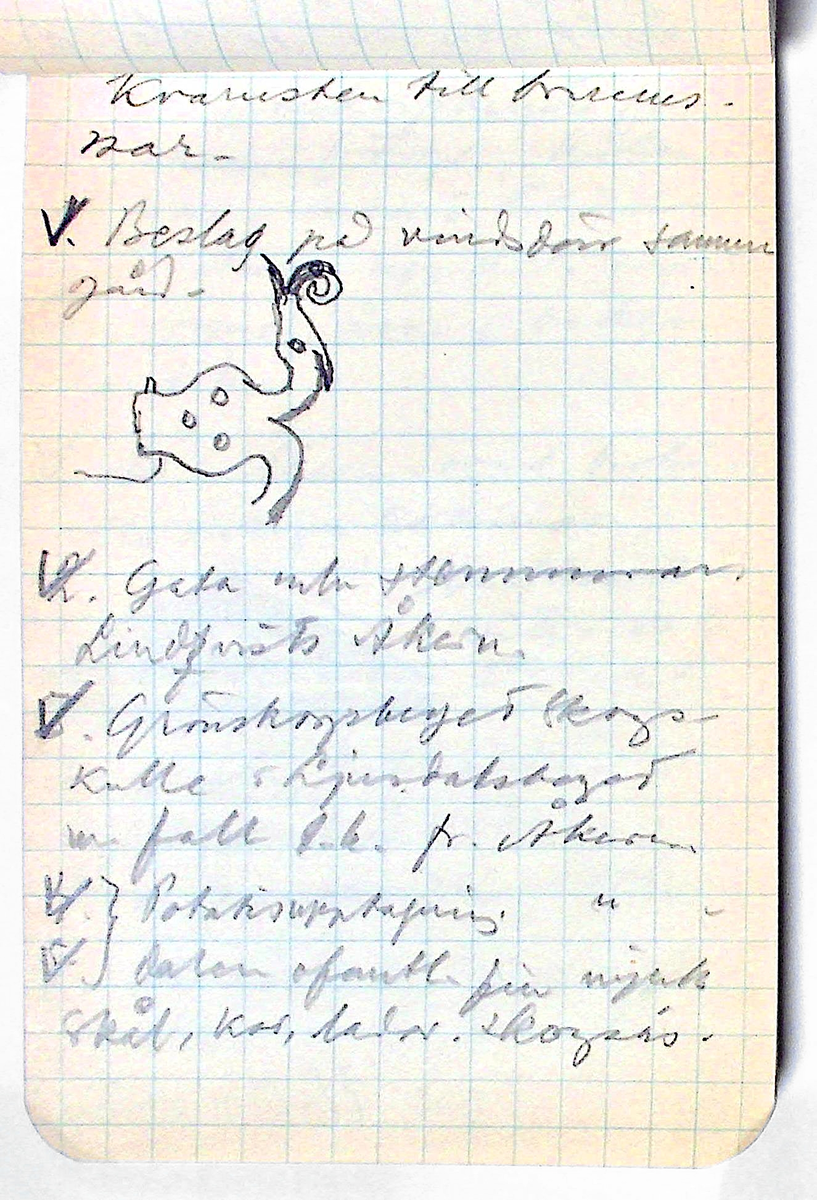 Kvarnsten till brunns-
kar.
1. Beslag på vindsdörr samma
gård.
2. Gata m
Lindqvists Åkern.
3. Grönskogsberget Skogs-
kulle Ljusdalsberget
m fall fr. Åkern
4. Potatisupptagning "
5. Dalen ofantl. fin mjuk
Skål, kor, lador. Skogsås.